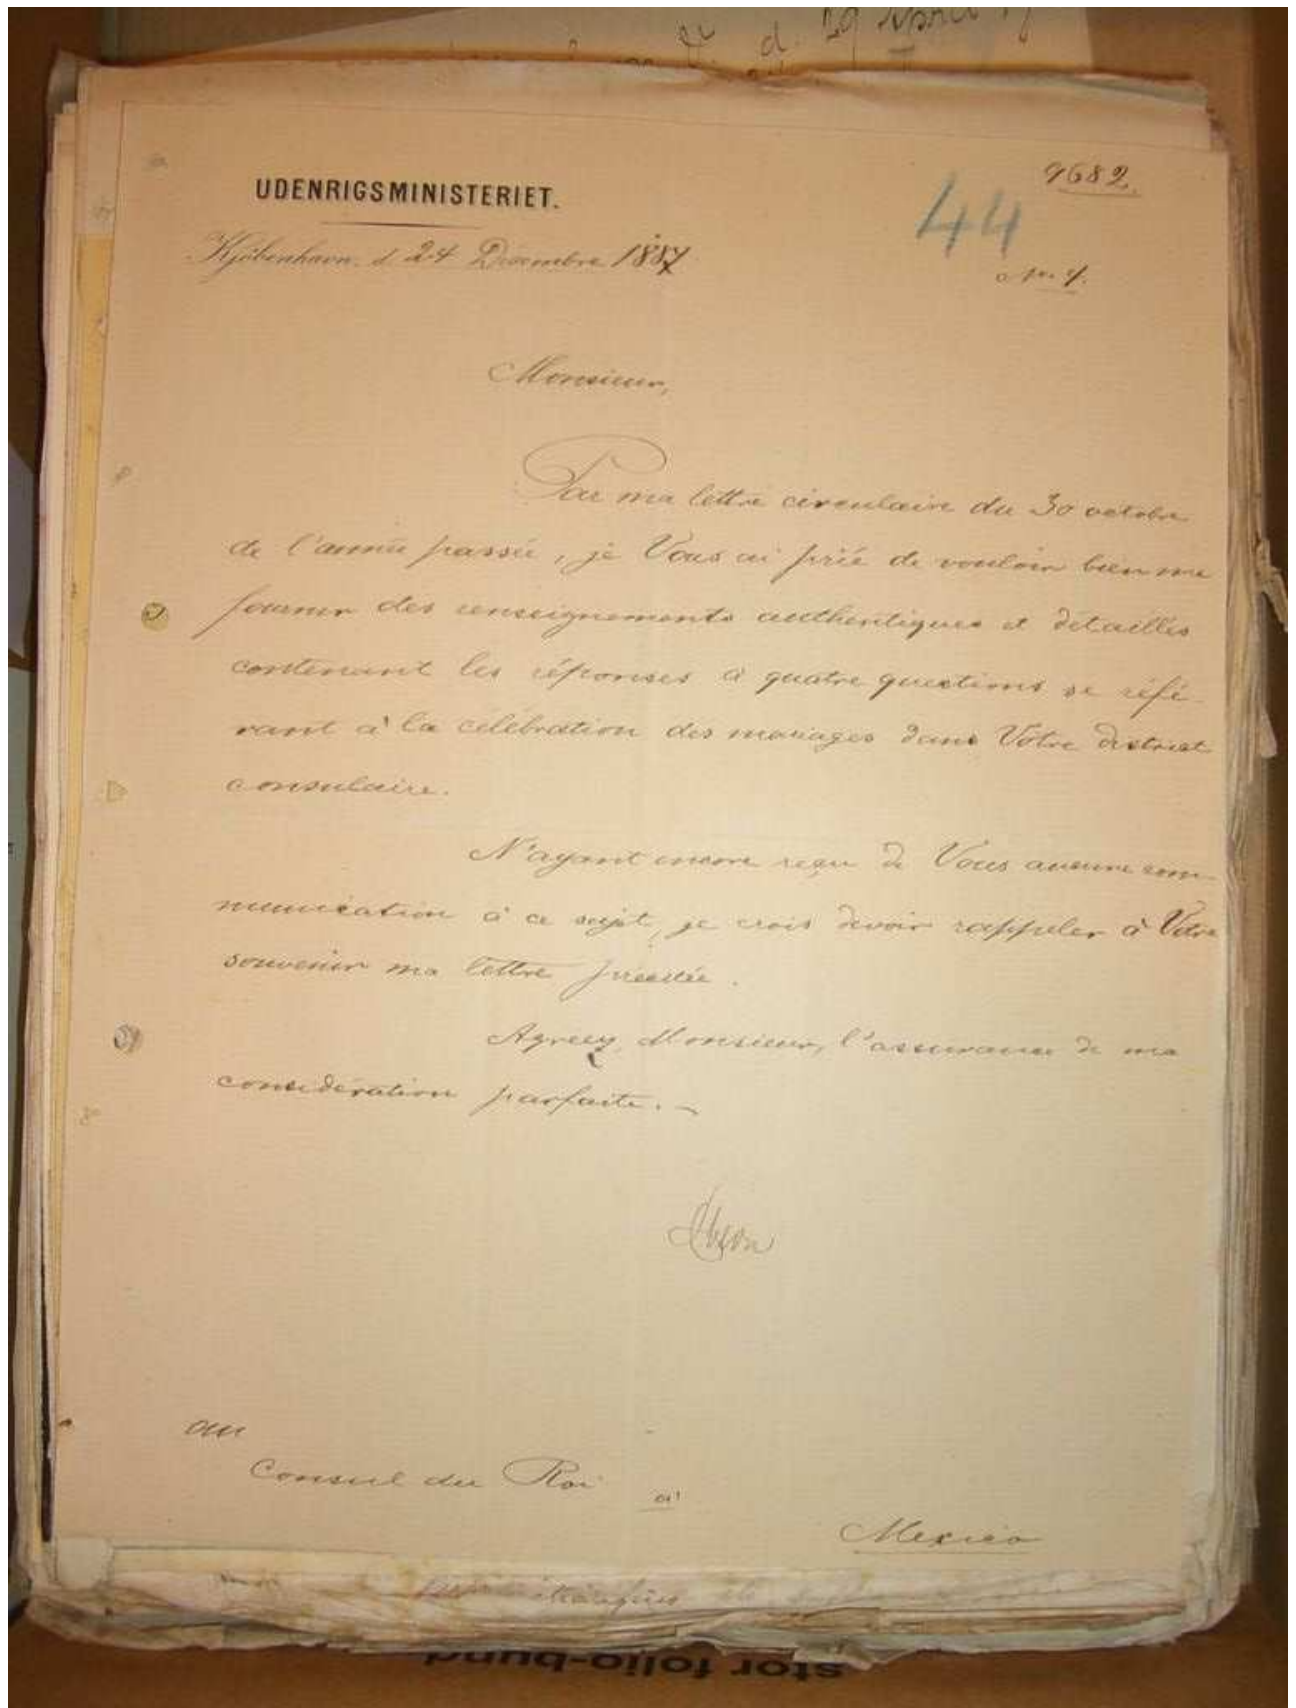 d. 29 April
9682.
44
UDENRIGSMINISTERIET.
Kjøbenhavn, d 24 Decembre 1887
No. 4.
Monsieur,
Par ma lettre circulaire du 30 octobre
de l'année passée, je Vous ai prié de vouloir bien me
fournir des renseignements authentiques et détaillés
contenant les réponses à quatre questions se réfé-
rant à la célébration des mariages dans Votre district
consulaire.
N'ayant encore reçu de Vous aucune com-
munication à ce sujet, je crois devoir rappeler à Votre
souvenir ma lettre précitée.
Agréez, Monsieur, l'assurance de ma
considération parfaite.
au
Consul du Roi
à
Mexico
stor folio-bund